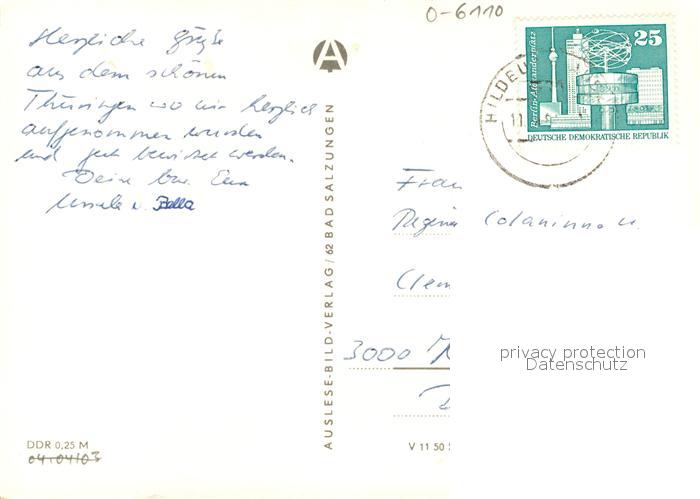 Herzliche Grüße
aus dem schönen
Thüringen wo wir herzlich
aufgenommen wurden
und gut bewirtet werden.
Deine bzw. Eure
Ursula u. Bella
DDR 0,25 M
04.04/03
AUSLESE-BILD-VERLAG/62 BAD SALZUNGEN
0-6110
Berlin-Alexanderplatz
25
DEUTSCHE DEMOKRATISCHE REPUBLIK
HILDBU
11
Frau
Regina Colaninno u.
Clem
3000
V 11 50
privacy protection
Datenschutz